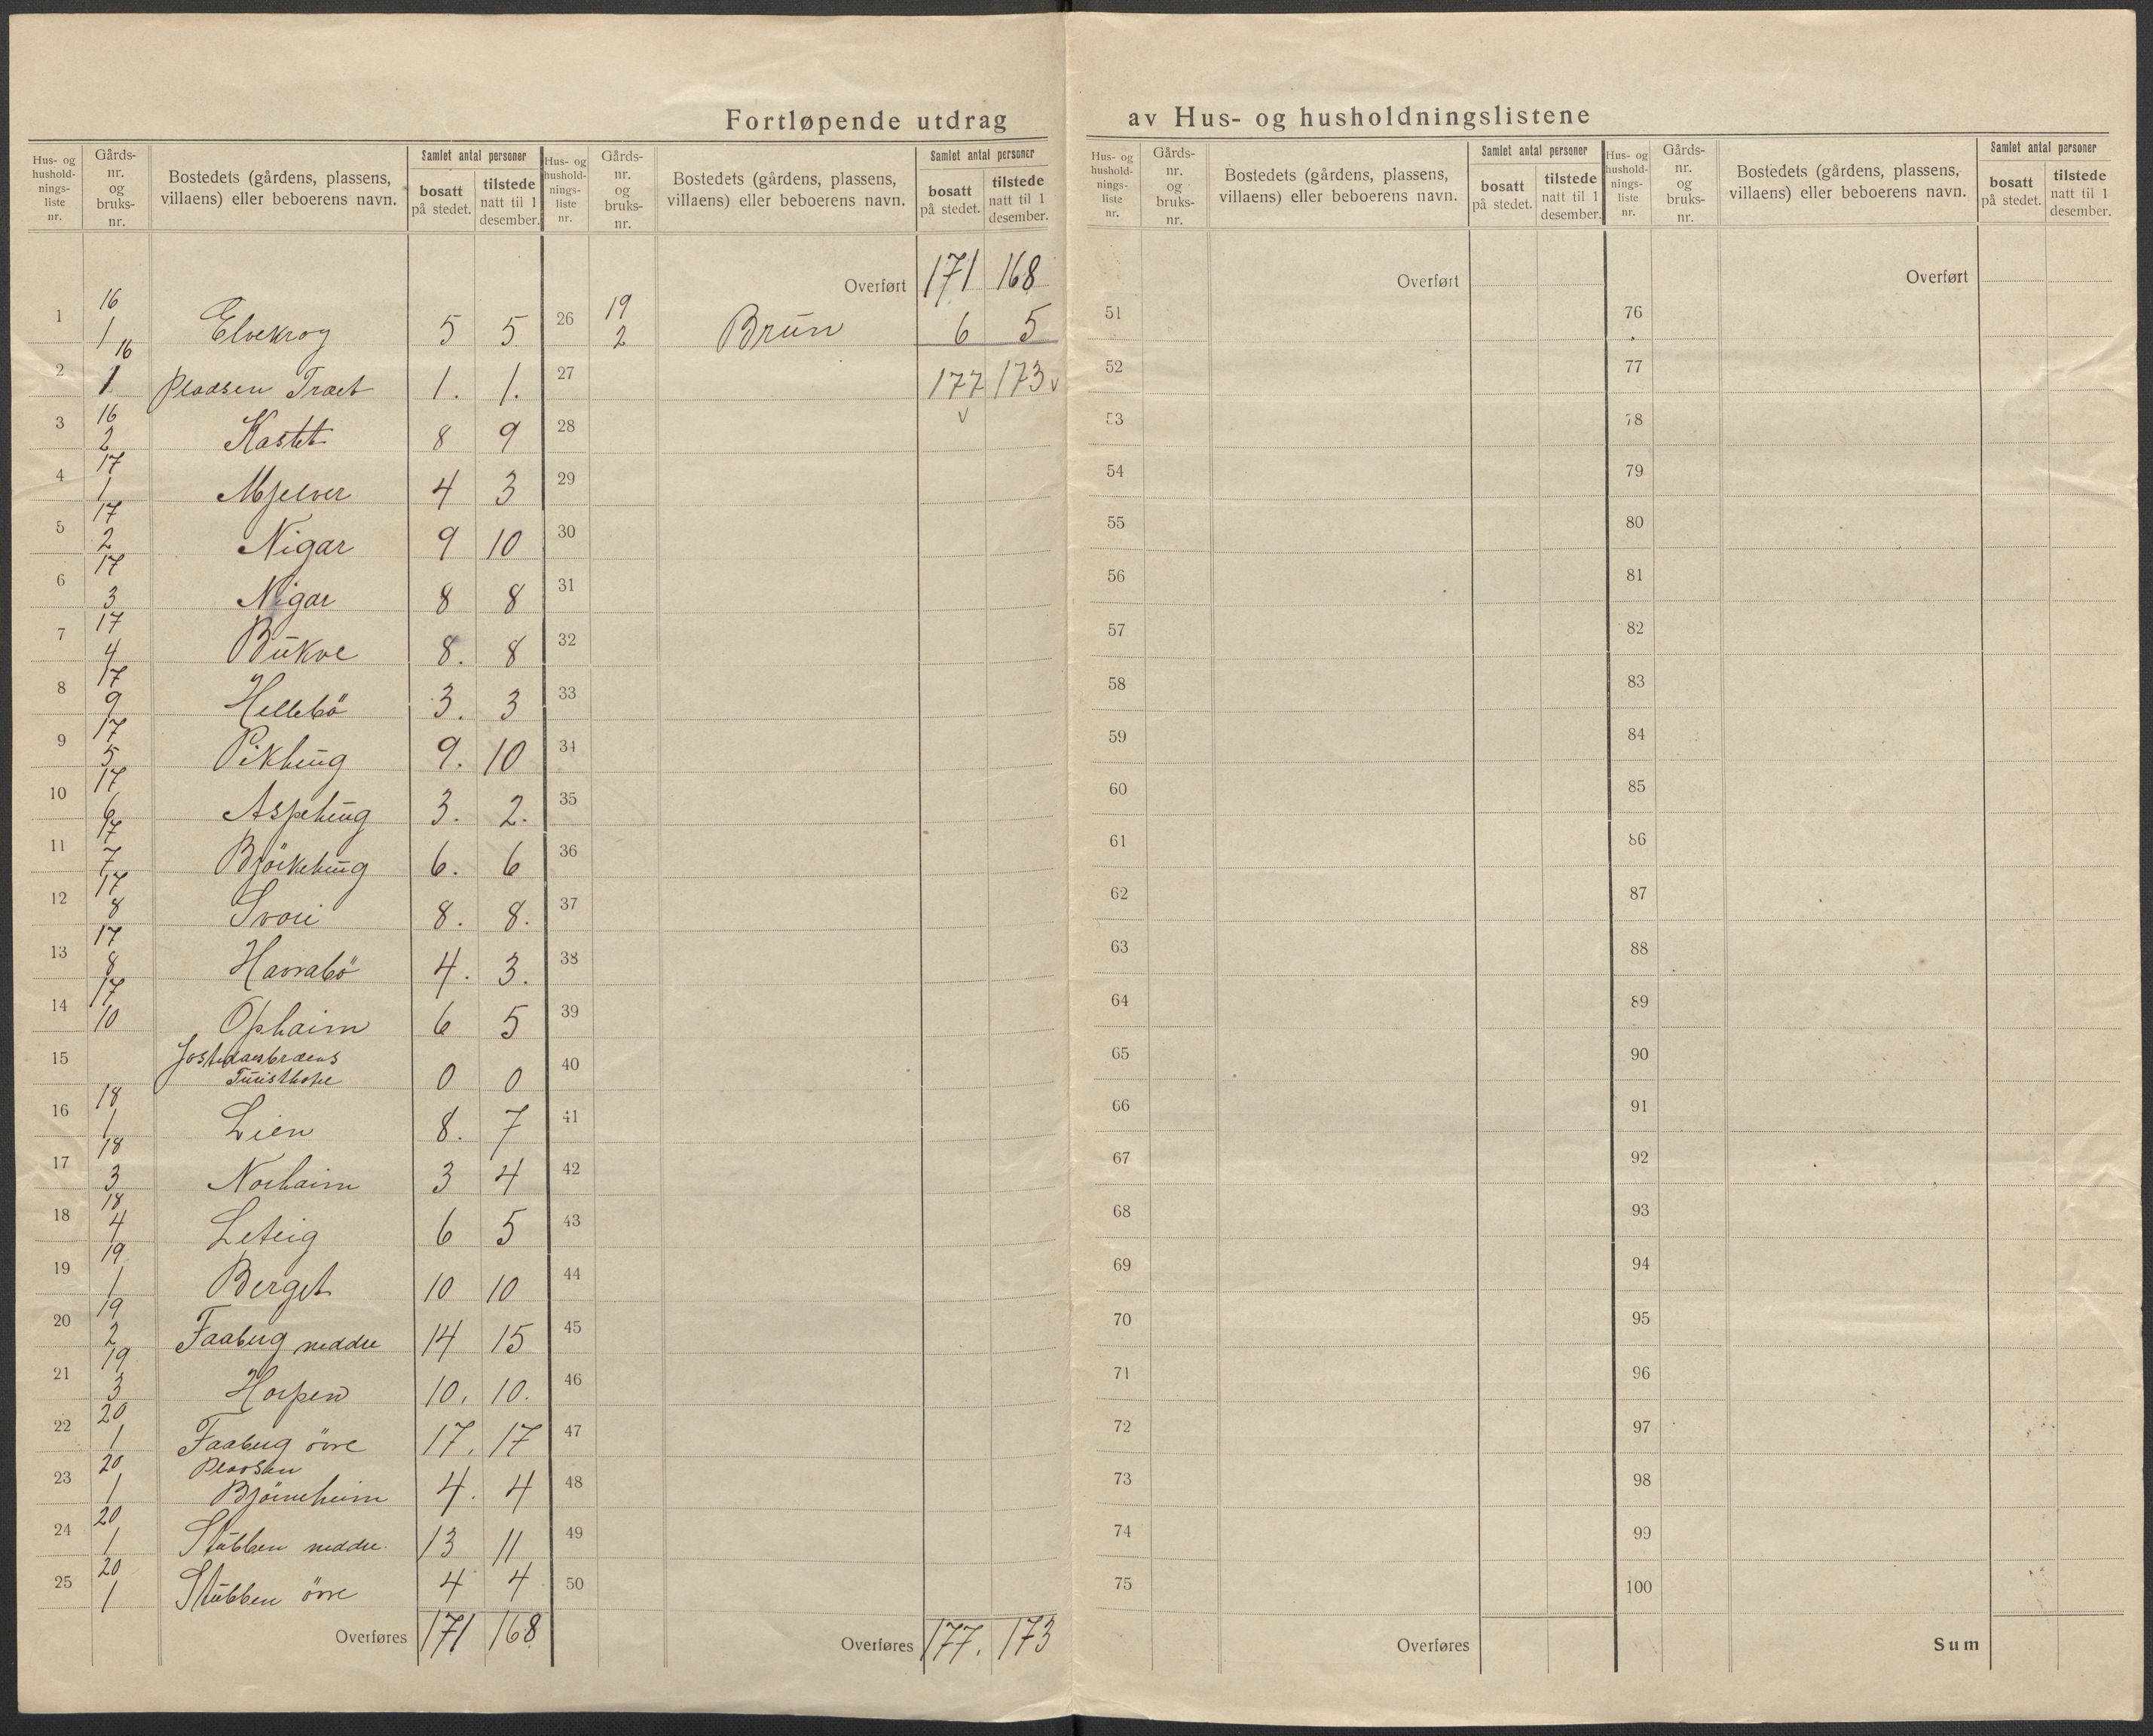 Fortløpende utdrag av Hus- og husholdningslistene
Hus- og hushold-nings-liste nr. Gårds-nr. og bruks-nr. Bostedets (gårdens, plassens, villaens) eller beboerens navn. Samlet antal personer bosatt på stedet. tilstede natt til 1 desember.
1 16 1 Elvekrog 5 5
2 16 1 Pladsen Træet 1. 1.
3 16 2 Kastet 8 9
4 17 1 Mjelver 4 3
5 17 2 Nigar 9 10
6 17 3 Nigar 8 8
7 17 4 Bukve 8. 8
8 17 9 Hellebö 3. 3
9 17 5 Pikhaug 9. 10
10 17 6 Aspehaug 3. 2.
11 17 7 Björkehaug 6. 6
12 17 8 Svori 8. 8.
13 17 8 Havrabö 4. 3.
14 17 10 Ophaim 6 5
15 Jostedalsbræens Turisthotel 0 0
16 18 1 Lien 8. 7
17 18 3 Norhaim 3 4
18 18 4 Leteig 6 5
19 19 1 Berget 10 10
20 19 2 Faaberg neddre 14 15
21 19 3 Horpen 10. 10.
22 20 1 Faaberg övre 17. 17
23 20 1 Pladsen Björneheim 4. 4
24 20 1 Stubben neddre. 13 11
25 20 1 Stubben övre 4 4
Overføres 171 168
Hus- og hushold-nings-liste nr. Gårds-nr. og bruks-nr. Bostedets (gårdens, plassens, villaens) eller beboerens navn. Samlet antal personer bosatt på stedet. tilstede natt til 1 desember.
Overført 171 168
26 19 2 Brun 6 5
27 177 173 v
v
28
29
30
31
32
33
34
35
36
37
38
39
40
41
42
43
44
45
46
47
48
49
50
Overføres 177. 173
Hus- og hushold-nings-liste nr. Gårds-nr. og bruks-nr. Bostedets (gårdens, plassens, villaens) eller beboerens navn. Samlet antal personer bosatt på stedet. tilstede natt til 1 desember.
Overført
51
52
53
54
55
56
57
58
59
60
61
62
63
64
65
66
67
68
69
70
71
72
73
74
75
Overføres
Hus- og hushold-nings-liste nr. Gårds-nr. og bruks-nr. Bostedets (gårdens, plassens, villaens) eller beboerens navn. Samlet antal personer bosatt på stedet. tilstede natt til 1 desember.
Overført
76
77
78
79
80
81
82
83
84
85
86
87
88
89
90
91
92
93
94
95
96
97
98
99
100
Sum